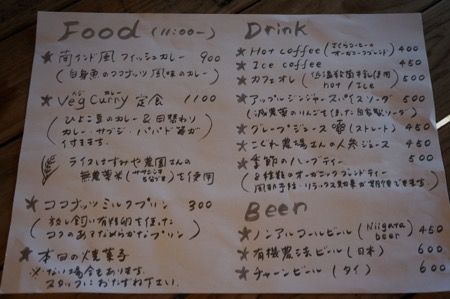 Food (11:00〜)
★ 南インド風 フィッシュカレー 900
(白身魚のココナッツ風味のカレー)
★ Veg Curry 定食 1100
(ひよこ豆のカレー & 日替わり
カレー・サブジ・パパド等が
付きます。)
ライスはすみや農園さんの
無農薬米(ササニシキ 5分づき)を使用
★ ココナッツミルクプリン 300
(放し飼い有精卵を使った
コクのあるなめらかなプリン)
★ 本日の焼菓子
※ない場合もあります。
スタッフにおたずね下さい。
Drink
★ Hot coffee (さくらコーヒーの オーガニックブレンド) 400
★ Ice coffee 450
★ カフェオレ (低温殺菌牛乳使用 hot / Ice) 500
★ アップルジンジャースパイスソーダ 500
(減農薬のりんごを使った自家製ソーダ)
★ グレープジュース (ストレート) 450
★ こくわ農場さんの人参ジュース 450
★ 季節のハーブティー 500
(8種類のオーガニックブレンドティー
風邪予防・リラックス効果が期待できます)
Beer
★ ノンアルコールビール (Niigata beer) 450
★ 有機農法ビール (日本) 600
★ チャーンビール (タイ) 600